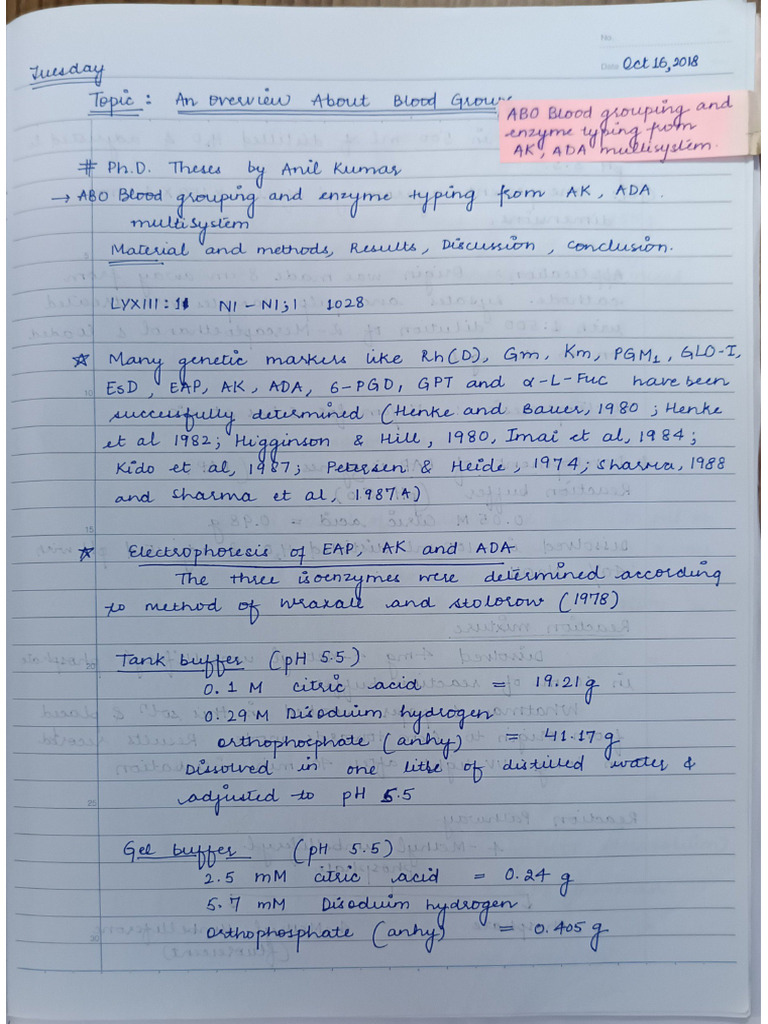 No.
Tuesday
Date Oct 16, 2018
Topic : An overview About Blood Group
ABO Blood grouping and
enzyme typing from
AK, ADA multisystem.
# Ph.D. Theses by Anil Kumar
→ ABO Blood grouping and enzyme typing from AK, ADA
multisystem
Material and methods, Results, Discussion, Conclusion.
LYXIII : 1 N1 – N1;1 1028
☆ Many genetic markers like Rh(D), Gm, Km, PGM₁, GLO-I,
10
EsD, EAP, AK, ADA, 6-PGD, GPT and α-L-Fuc have been
successfully determined (Henke and Bauer, 1980 ; Henke
et al 1982; Higginson & Hill, 1980, Imai et al, 1984;
Kido et al, 1987; Petersen & Heide, 1974; Sharma, 1988
and Sharma et al, 1987A)
15
☆ Electrophoresis of EAP, AK and ADA
The three isoenzymes were determined according
to method of Wraxall and Stolorow (1978)
20
Tank buffer (pH 5.5)
0.1 M citric acid = 19.21 g
0.29 M Disodium hydrogen
orthophosphate (anhy) = 41.17 g
Dissolved in one litre of distilled water &
25
adjusted to pH 5.5
Gel buffer (pH 5.5)
2.5 mM citric acid = 0.24 g
5.7 mM Disodium hydrogen
30
orthophosphate (anhy) = 0.405 g